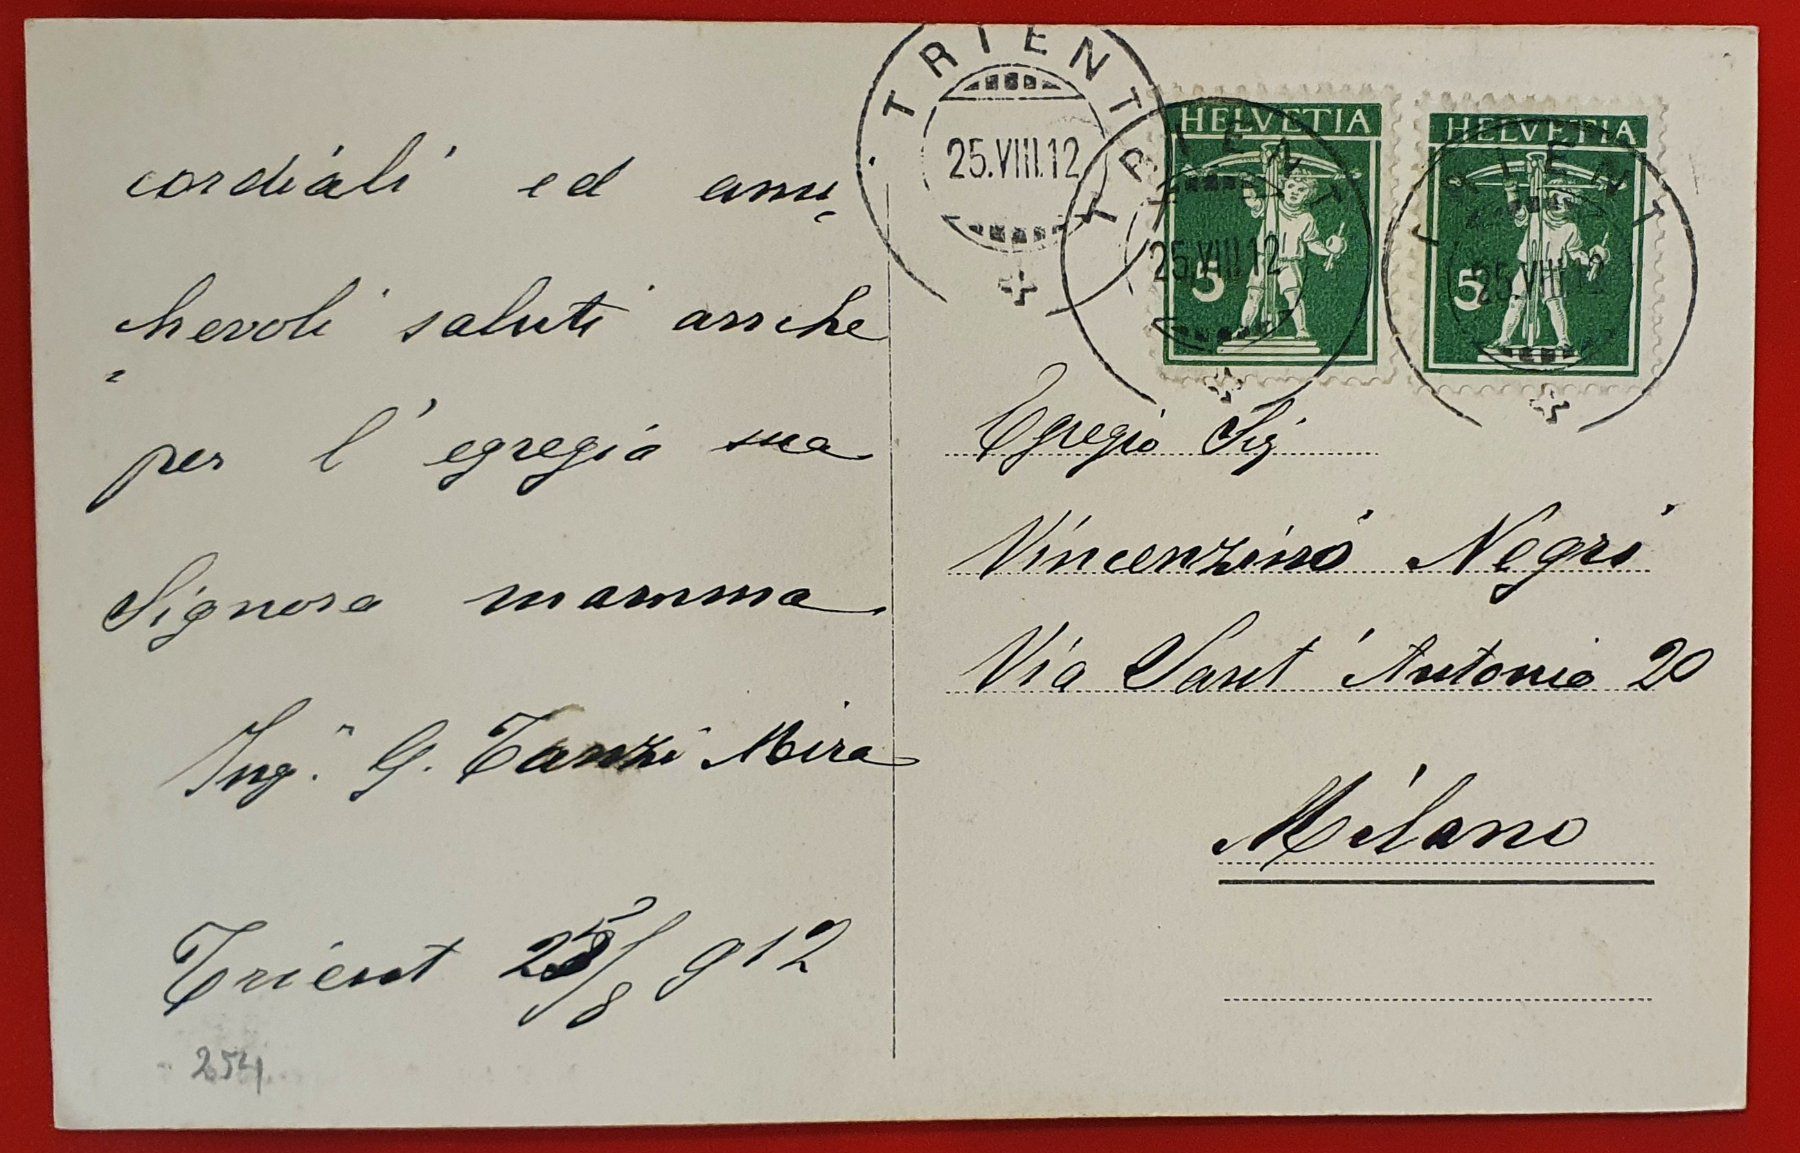 cordiali ed ami„
„hevoli saluti anche
per l'egregia sua
Signora mamma.
Ing.r G. Tanzi Mira
Trient 25/8 912
254
TRIENT
25.VIII.12
HELVETIA
TRIENT
25.VIII.12
5
HELVETIA
TRIENT
25.VIII.12
5
Egregio Sig
Vincenzino Negri
Via Sant'Antonio 20
Milano